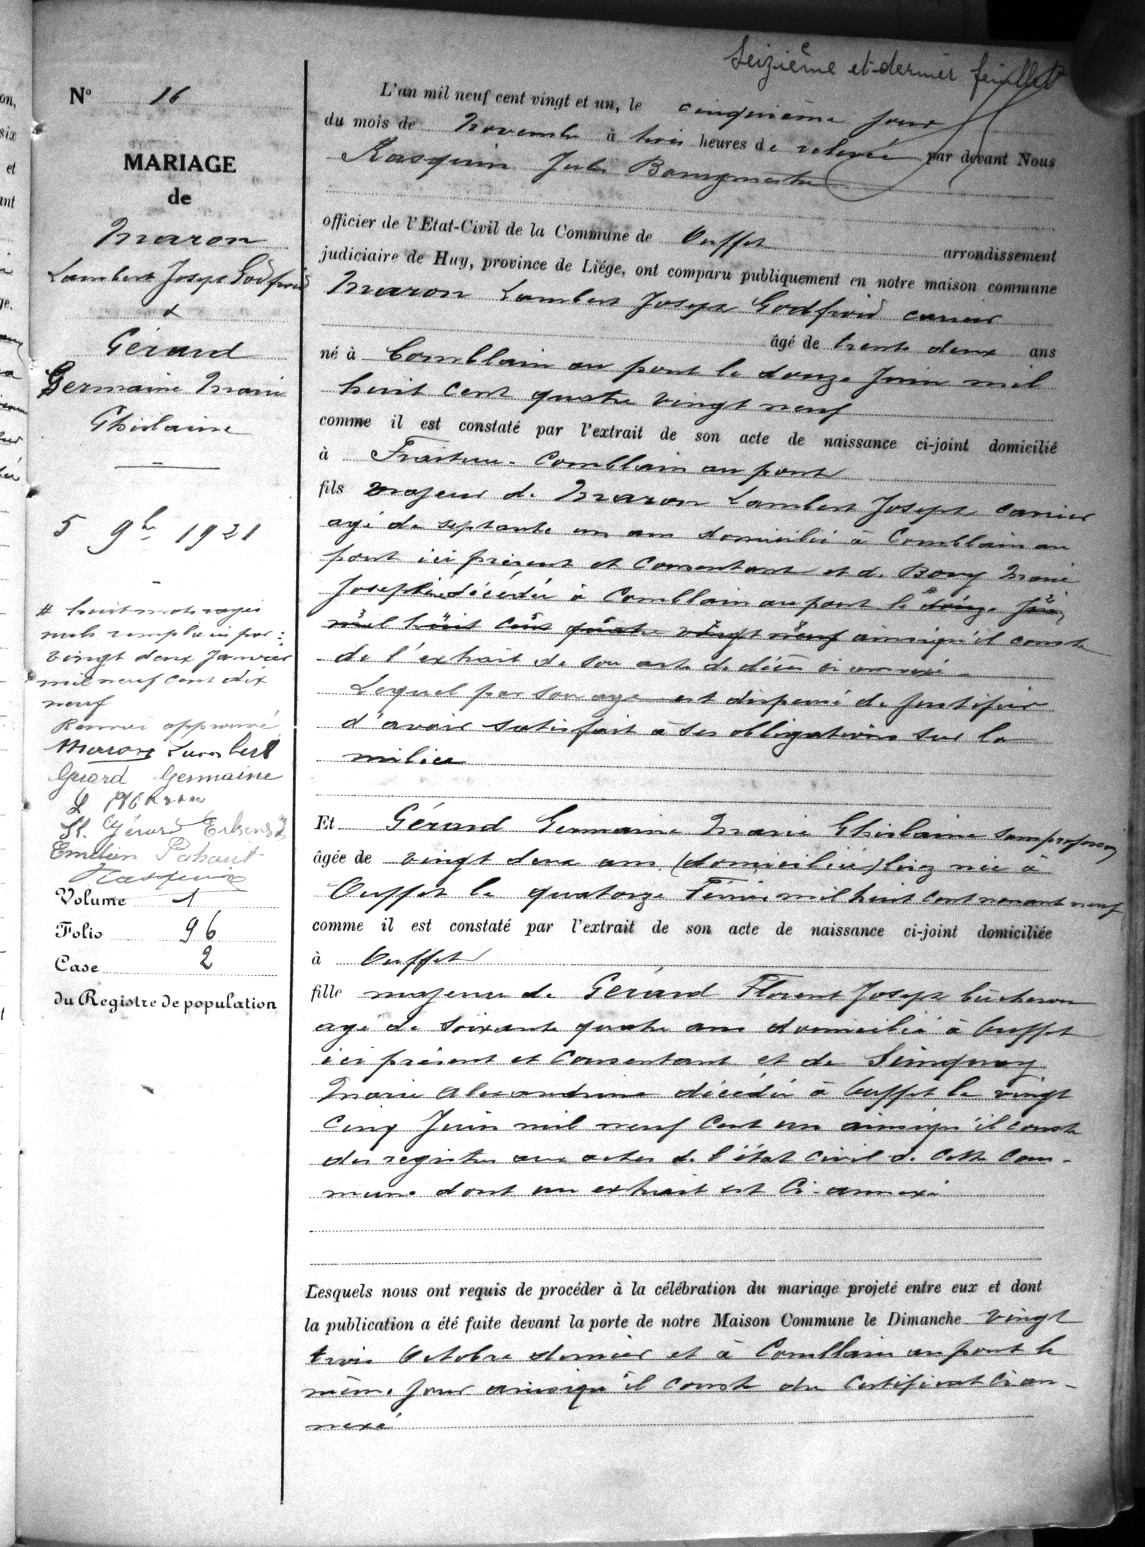 Seizième et dernier feuillet
N° 16
MARIAGE
de
Maron
Lambert Joseph Godfroid
&
Gérard
Germaine Marie
Ghislaine
5 9b 1921
# huit mots rayés
nuls remplacés par:
vingt deux Janvier
mil neuf cent dix
neuf
Renvoi approuvé
Maron Lambert
Gérard Germaine
L Maron
Fl. Gérard
Emilien
Rasquin
Volume 1
Folio 96
Case 2
du Registre de population
L'an mil neuf cent vingt et un, le cinquième jour
du mois de Novembre à trois heures de relevée par devant Nous
Rasquin Jules Bourgmestre
officier de l'Etat-Civil de la Commune de Ouffet arrondissement
judiciaire de Huy, province de Liége, ont comparu publiquement en notre maison commune
Maron Lambert Joseph Godfroid carrier
âgé de trente deux ans
né à Comblain au pont le douze Juin mil
huit cent quatre vingt neuf
comme il est constaté par l'extrait de son acte de naissance ci-joint domicilié
à Fraiture-Comblain au pont
fils majeur de Maron Lambert Joseph carrier
agé de septante un ans domicilié à Comblain au
pont ici présent et consentant et de Bovy Marie
Josephine décédée à Comblain au pont le # douze Juin
mil huit cent quatre vingt neuf ainsiqu'il conste
de l'extrait de son acte de décès ci annexé -
Lequel par son age est dispensé de justifier
d'avoir satisfait à ses obligations sur la
milice
Et Gérard Germaine Marie Ghislaine sans profession
âgée de vingt deux ans (domiciliée) née à
Ouffet le quatorze Février mil huit cent nonante neuf
comme il est constaté par l'extrait de son acte de naissance ci-joint domiciliée
à Ouffet
fille majeure de Gérard Florent Joseph bûcheron
agé de soixante quatre ans domicilié à Ouffet
ici présent et consentant et de Simquay
Marie Alexandrine décédée à Ouffet le vingt
cinq Juin mil neuf cent un ainsiqu'il conste
des registres aux actes de l'état civil de cette com-
mune dont un extrait est ci-annexé
Lesquels nous ont requis de procéder à la célébration du mariage projeté entre eux et dont
la publication a été faite devant la porte de notre Maison Commune le Dimanche vingt
trois Octobre dernier et à Comblain au pont le
même jour ainsiqu'il conste du certificat ci an-
nexé